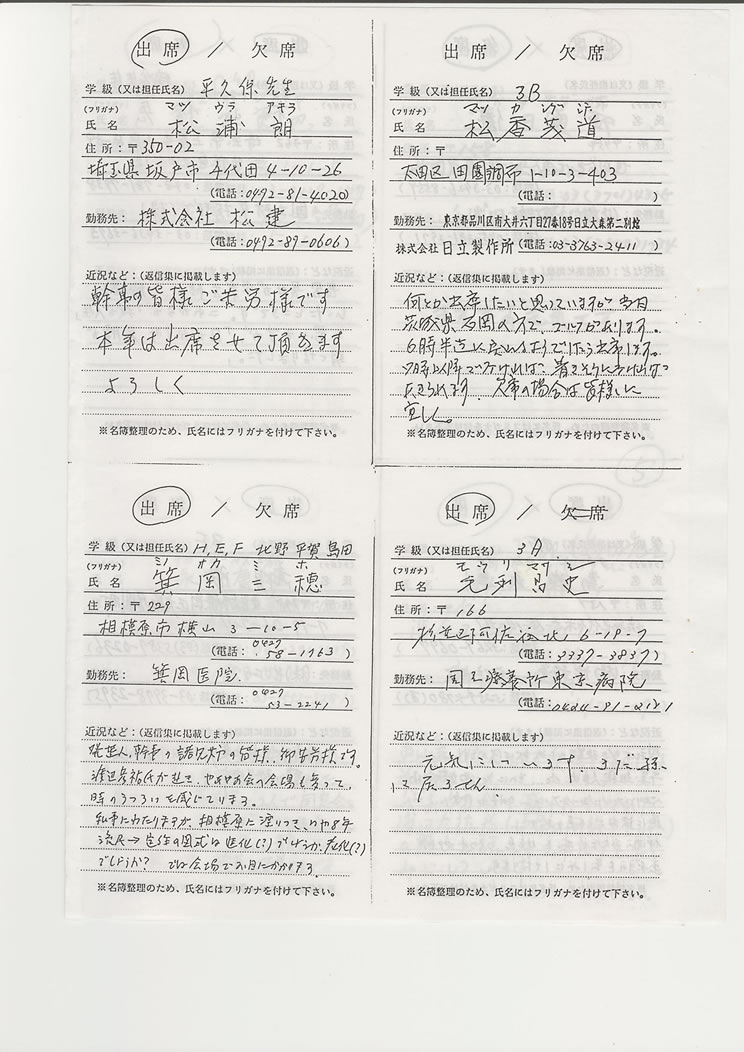 出席 / 欠席
学級(又は担任氏名) 平久保先生
(フリガナ) マツ ウラ アキラ
氏名 松浦 朗
住所:〒350-02
埼玉県坂戸市千代田4-10-26
(電話:0492-81-4020)
勤務先: 株式会社 松建
(電話:0492-89-0606)
近況など:(返信集に掲載します)
幹事の皆様ご苦労様です
本年は出席させて頂きます
よろしく
※名簿整理のため、氏名にはフリガナを付けて下さい。
出席 / 欠席
学級(又は担任氏名) 3B
(フリガナ) マツ カ
氏名 松香茂道
住所:〒
大田区田園調布1-10-3-403
(電話: )
勤務先: 東京都品川区南大井六丁目27番18号日立大森第二別館
株式会社 日立製作所 (電話:03-3763-2411)
近況など:(返信集に掲載します)
何とか出席したいと思っていますが当日
茨城県石岡の方で、ゴルフがあります。
6時半迄に
欠席の場合は皆様に
宜し。
※名簿整理のため、氏名にはフリガナを付けて下さい。
出席 / 欠席
学級(又は担任氏名) H,E,F 北野 平賀 島田
(フリガナ) ミノ オカ ミ ホ
氏名 箕岡三穂
住所:〒229
相模原市横山3-10-5
(電話:0427 58-1763)
勤務先: 箕岡医院
(電話:0427 53-2241)
近況など:(返信集に掲載します)
発世人、幹事の諸兄姉の皆様、御苦労様です。
時のうつろいを感じています。
私事にわたりますが、相模原に渡りつて、8年
でしょうか? では会場でお目にかかります。
※名簿整理のため、氏名にはフリガナを付けて下さい。
出席 / 欠席
学級(又は担任氏名) 3A
(フリガナ) モウリ マサ シ
氏名 毛利昌史
住所:〒166
杉並区阿佐谷北6-19-7
(電話:3337-3837)
勤務先: 国立療養所東京病院
(電話:0424-91-2121)
近況など:(返信集に掲載します)
元気にしています。まだ孫
は居ません。
※名簿整理のため、氏名にはフリガナを付けて下さい。